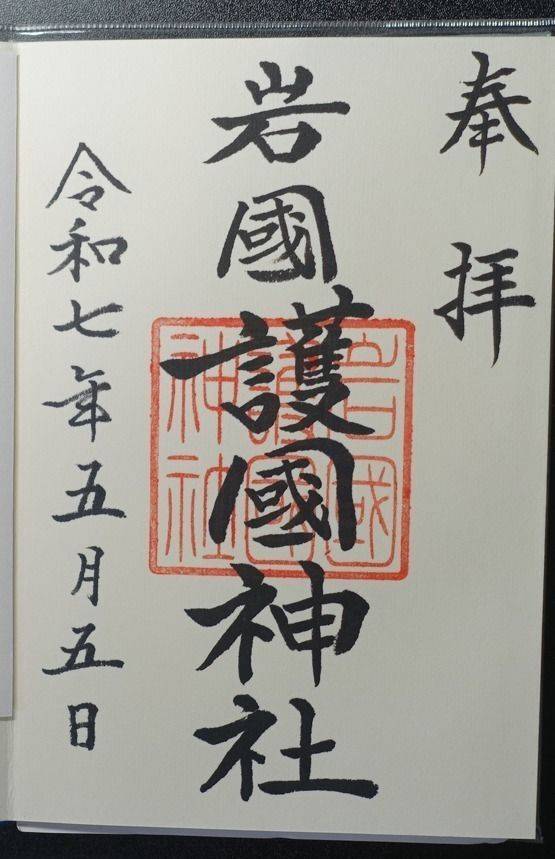 奉拝
岩國護國神社
岩國
護國
神社
令和七年五月五日